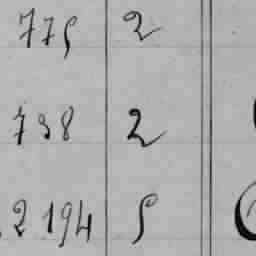 775 2
738 2
2 194 5